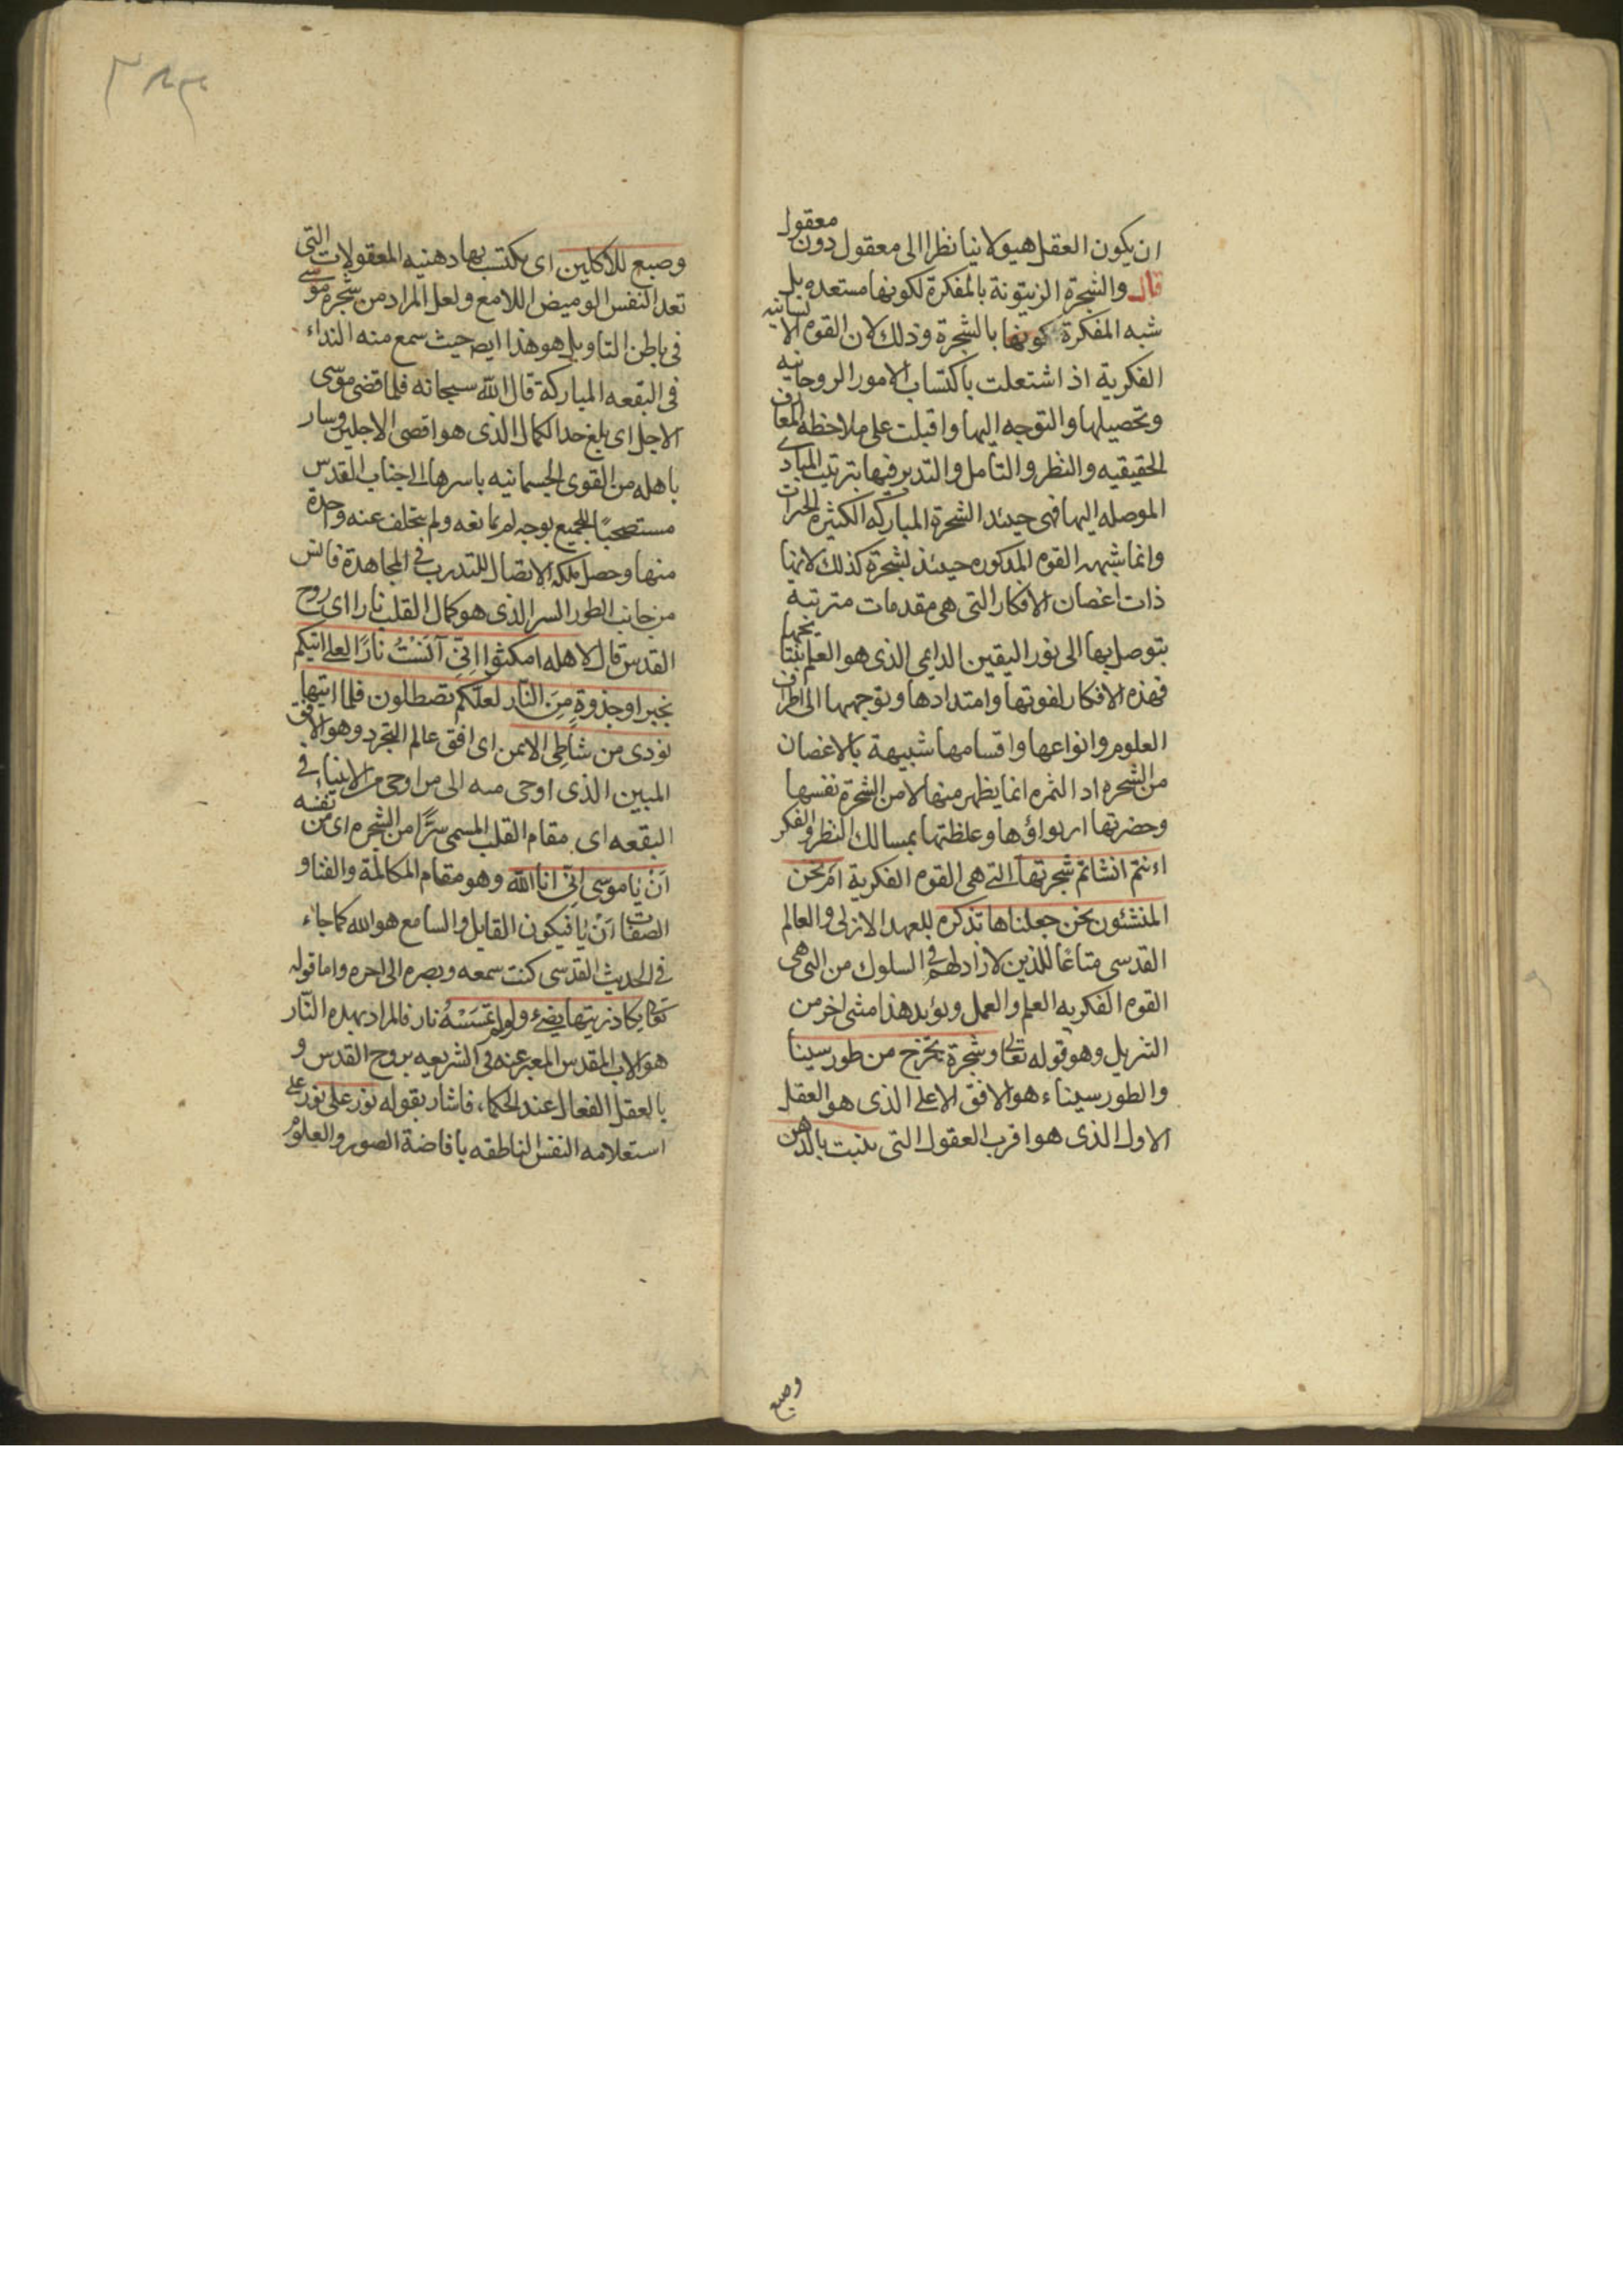 ان يكون العقل هيولانيا نظرا الى معقول دون معقول
قال والشجرة الزيتونة بالمفكرة لكونها مستعده بل
شبه المفكرة كونها بالشجرة وذلك لان القوه الانسانيه
الفكرية اذ اشتعلت باكتساب الامور الروحانيه
وتحصيلها والتوجه اليها واقبلت على ملاحظه المعارف
الحقيقيه والنظر والتامل والتدبر فيها بترتيب المبادى
الموصله اليها فهى حينئد الشجرة المباركه الكثيرة الخيرات
وانما شبهه القوه المذكوره حينئذ لشجرة كذلك لانها
ذات اغصان الافكار التى هى مقدمات مترتبه
يتوصل بها الى نور اليقين الداعى الذى هو العلم بنتائجها
فهذه الافكار لقوتها وامتدادها وتوجهها الى اطراف
العلوم وانواعها واقسامها شبيهة بالاغصان
من الشجره اد الثمره انما يظهر منها لا من الشجرة نفسها
وحضرتها ارتواؤها وغلظتها بمسالك النظر والفكر
اءنتم انشاتم شجرتها التى هى القوه الفكرية ام نحن
المنشئون نحن جعلناها تذكره للعهد الازلى والعالم
القدسى متاعا للذين لا زاد لهم فى السلوك من التى هى
القوه الفكريه العلم والعمل ويؤيد هذا مشى اخر من
التنزيل وهو قوله تعالى وشجرة تخرج من طور سينا
والطور سيناء هو الافق الاعلى الذى هو العقل
الاول الذى هو اقرب العقول التى تنبت بالدهن
وصبغ
وصبغ للاكلين اى يكتسب بها دهنيه المعقولات التى
تعد النفس الوميض اللامع ولعل المراد من شجرة موسى
فى باطن التاويل هو هذا ايضا حيث سمع منه النداء
فى البقعه المباركة قال الله سبحانه فلما قضى موسى
الاجل اى بلغ حد الكمال الذى هو اقصى الاجلين وسار
باهله من القوى الجسمانيه باسرها الى جناب القدس
مستصحبًا للجميع بوجه لم تمانعه ولم يتخلف عنه واحدة
منها وحصل ملكه الاتصال للتدرب فى المجاهدة فانس
من جانب الطور السر الذى هو كمال القلب نارا اى روح
القدس قال لاهله امكثوا اِنّى آنَسْتُ نارًا لعلى اتيكم
بخبر او جذوةٍ مِنَ النّار لعلّكم تصطلون فلما اتيها
نودى من شاطِى الايمن اى افق عالم التجرد وهو الافق
المبين الذى اوحى منه الى من اوحى من الانبياء فى
البقعه اى مقام القلب المسمى سرًّا من الشجره اى من نفسه
اَنْ يا موسى اِنّى انا الله وهو مقام المكالمة والفنا و
الصفات اَنْ يا فيكون القايل والسامع هو الله كما جاء
فى الحديث القدسى كنت سمعه وبصره الى اخره واما قوله
تعالى يكاد زيتها يضىء ولو لم تمسَسْهُ نار فالمراد بهده النّار
هو الاب المقدس المعبر عنه فى الشريعه بروح القدس و
بالعقل الفعال عند الحكماء، فاشار بقوله نور على نور على
استعلامه النفس الناطقه بافاضة الصور والعلوم